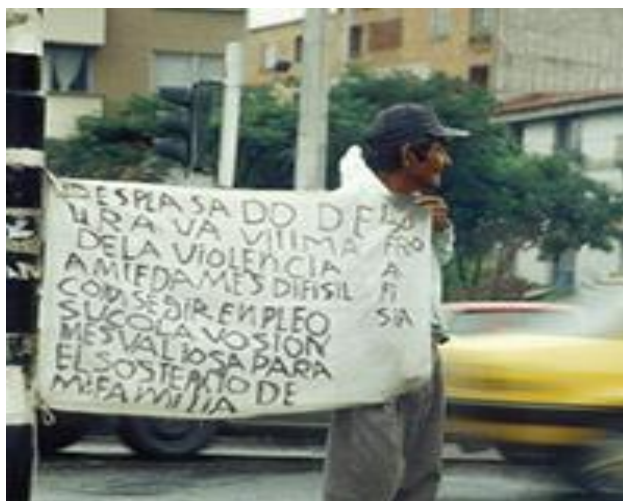 DESPLASADO DE LA
URAVA VITIMA FRO
DELA VIOLENCIA A
AMIEDAMES DIFISIL FI
CONSEGIR ENPLEO SIA
SUCOLAVOSION
MESVALIOSA PARA
EL SOSTENTO DE
MI FAMILIA